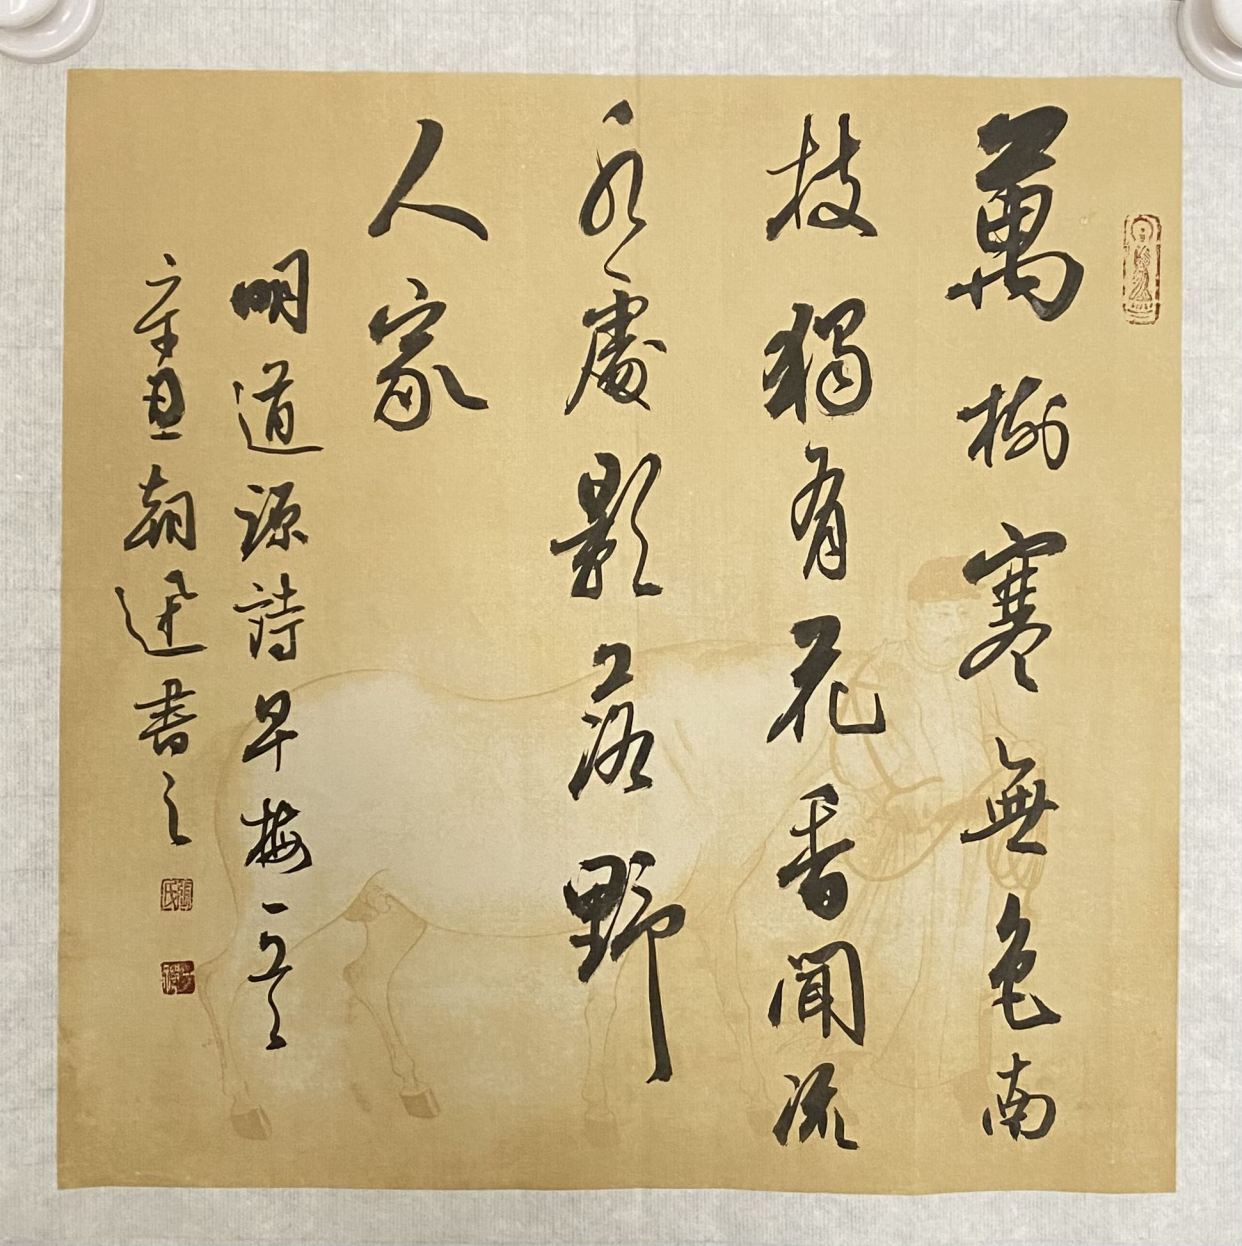 萬樹寒無色南
枝獨有花香聞流
水處影落野
人家
明道源詩早梅一首
辛丑朝迅書之
張氏